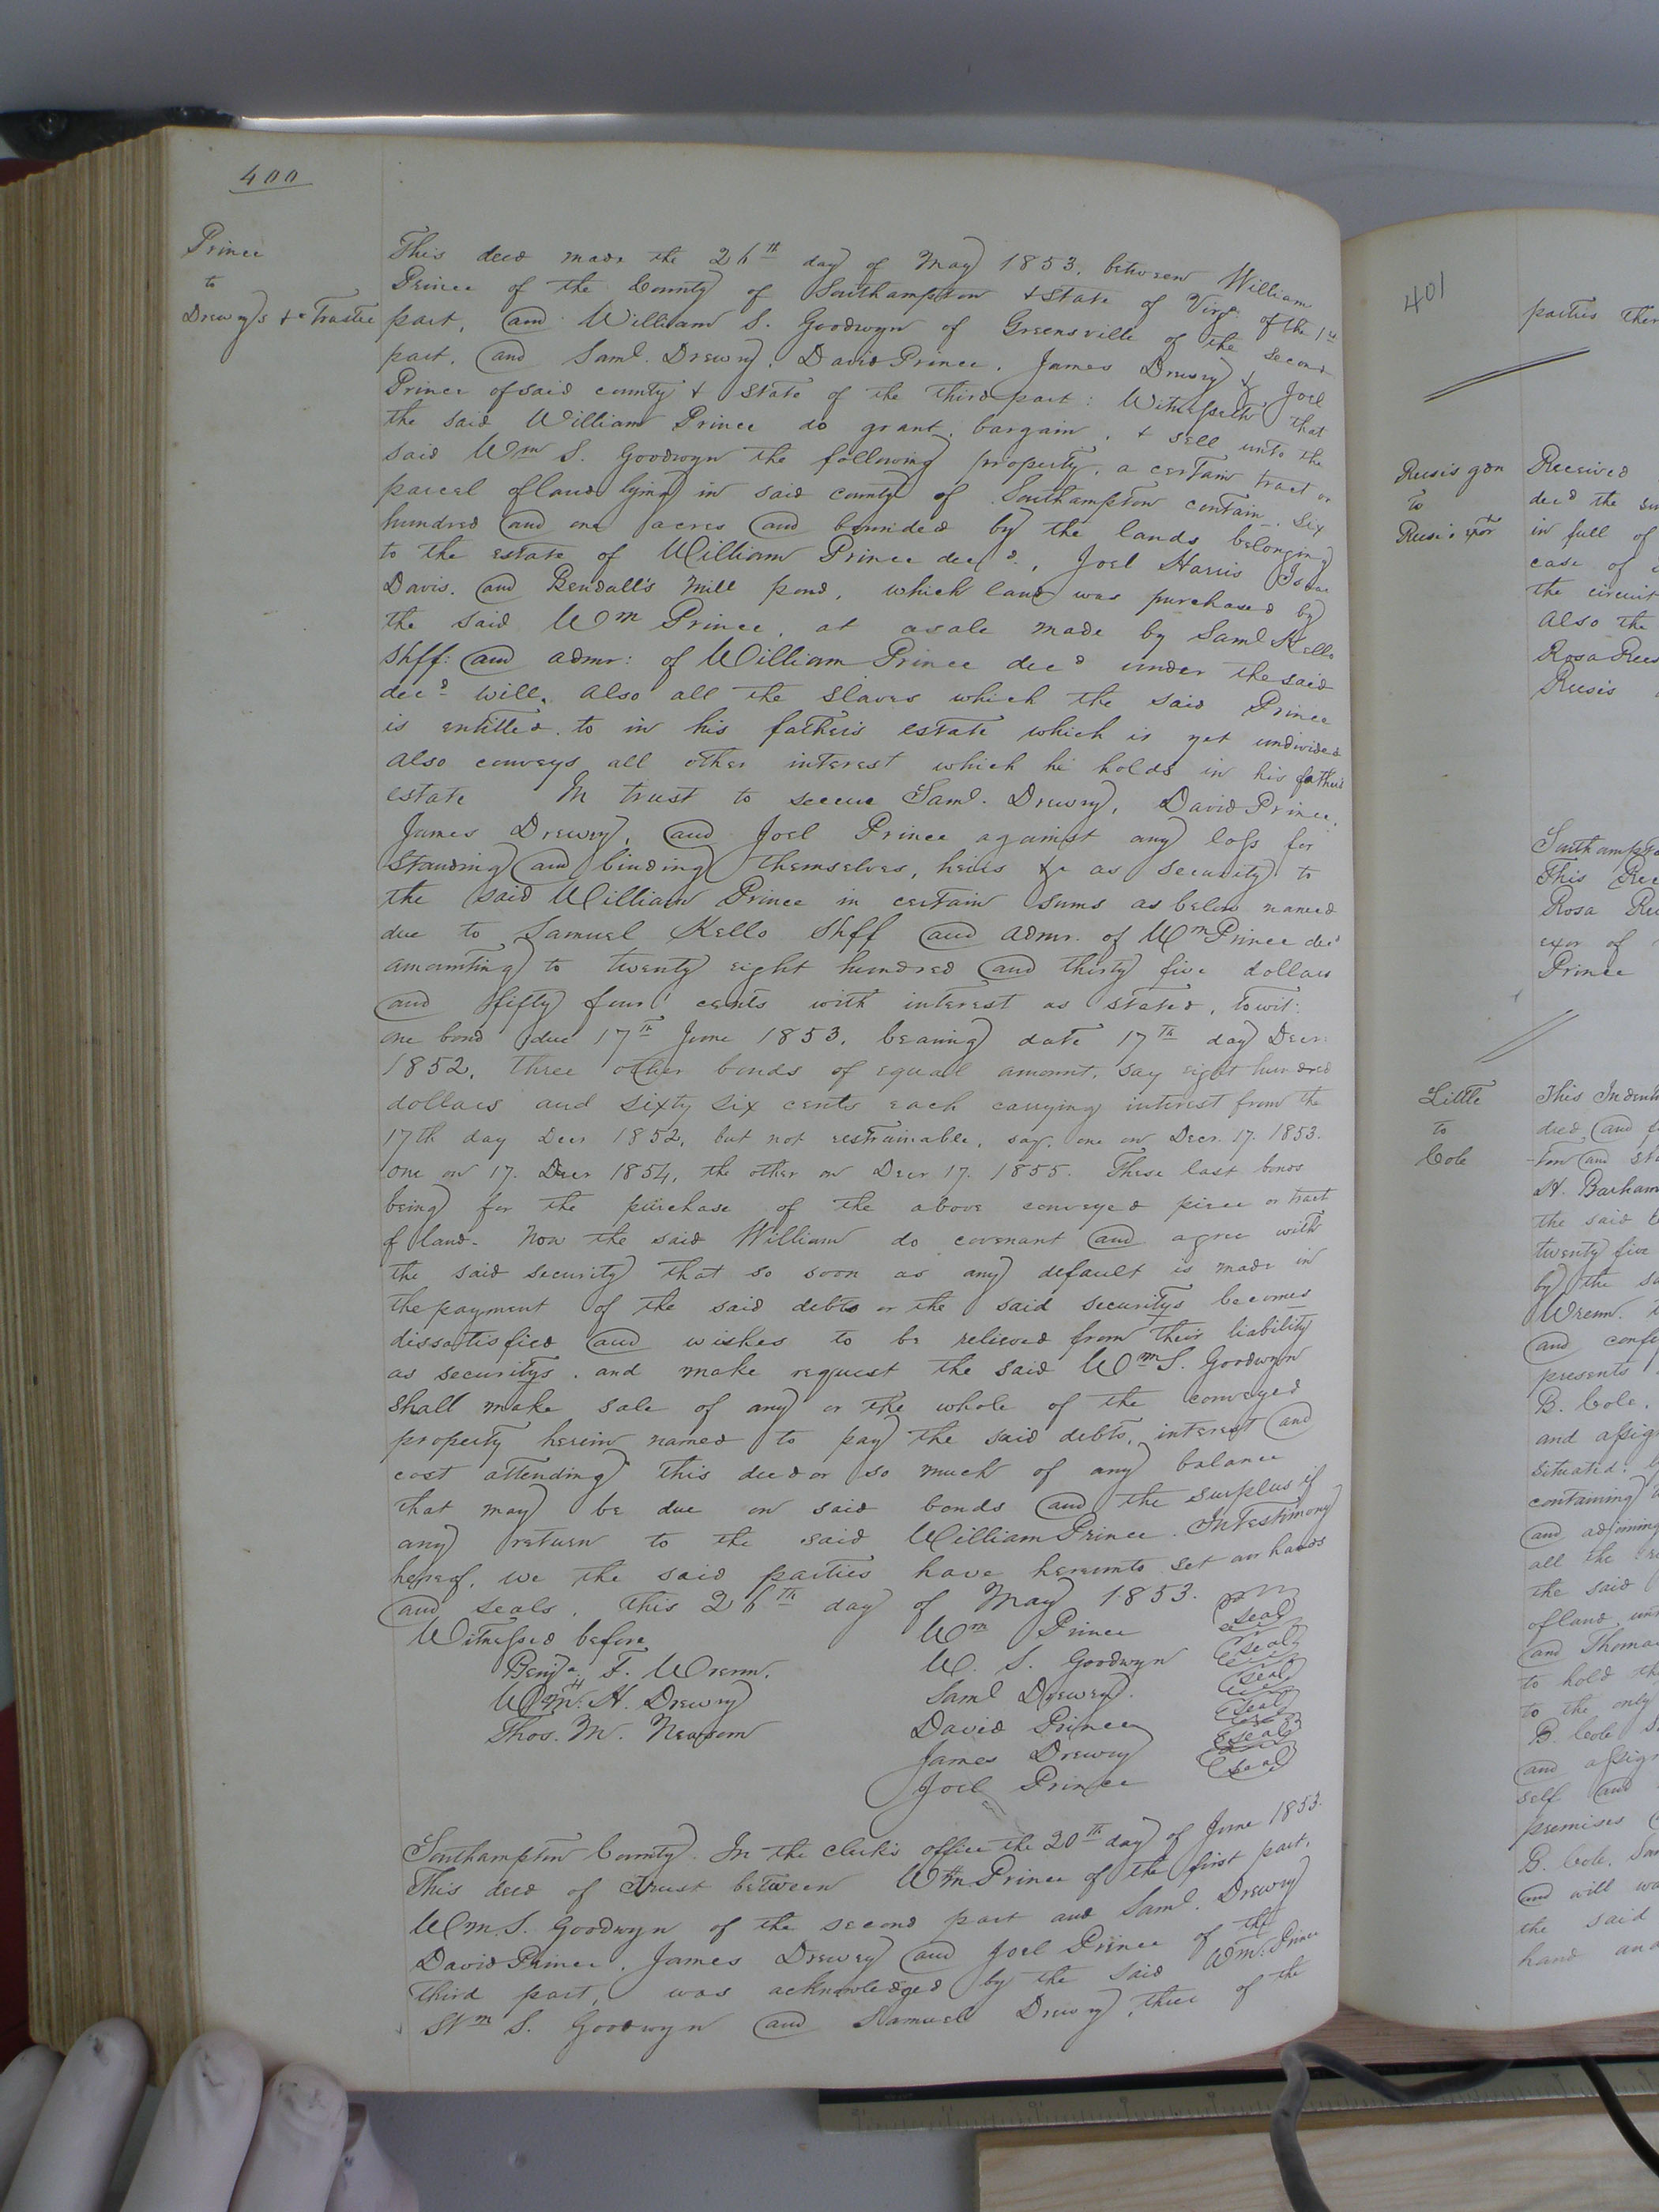 400
Prince
to
Drewrys &c Trustee
This deed made the 26th day of May 1853, between William
Prince of the County of Southampton & State of Virga. of the 1st
part, and William S. Goodwyn of Greensville of the second
part, and Saml. Drewry, David Prince, James Drewry & Joel
Prince of said county & State of the third part: Witnesseth that
the said William Prince do grant, bargain, & sell unto the
said Wm S. Goodwyn the following property, a certain tract or
parcel of land lying in said county of Southampton contain. six
hundred and one acres and bounded by the lands belonging
to the estate of William Prince decd., Joel Harris Isaac
Davis, and Bendall's mill pond, which land was purchased by
the said Wm Prince, at a sale made by Saml Kello
Shff: and admr: of William Prince decd under the said
decd will, also all the slaves which the said Prince
is entitled to in his father's estate which is yet undivided
also conveys all other interest which he holds in his father's
estate In trust to secure Saml. Drewry, David Prince,
James Drewry, and Joel Prince against any loss for
standing and binding themselves, heirs &c as security to
the said William Prince in certain sums as below named
due to Samuel Kello Shff and admr. of Wm Prince decd
amounting to twenty eight hundred and thirty five dollars
and fifty four cents with interest as stated, towit:
one bond due 17th June 1853, bearing date 17th day Decr.
1852, three other bonds of equal amount, say eight hundred
dollars and sixty six cents each carrying interest from the
17th day Decr 1852, but not restrainable, say, one on Decr. 17. 1853.
one on 17. Decr 1854, the other on Decr 17. 1855. These last bonds
being for the purchase of the above conveyed piece or tract
of land. Now the said William do covenant and agree with
the said security that so soon as any default is made in
the payment of the said debts or the said securitys becomes
dissatisfied and wishes to be relieved from their liability
as securitys, and make request the said Wm S. Goodwyn
shall make sale of any or the whole of the conveyed
property herein named to pay the said debts, interest and
cost attending this deed or so much of any balance
that may be due on said bonds and the surplus if
any return to the said William Prince. In testimony
hereof, we the said parties have hereunto set our hands
and seals, this 26th day of May 1853.
Witnessed before
Wm Prince seal
Benja. F. Wrenn.
W. S. Goodwyn seal
Wm. H. Drewry
Saml Drewry. seal
Thos. M. Newsom
David Prince seal
James Drewry seal
Joel Prince seal
Southampton County. In the clerk's office the 20th day of June 1853.
This deed of Trust between Wm Prince of the first part,
Wm. S. Goodwyn of the second part and Saml. Drewry
David Prince, James Drewry and Joel Prince of the
third part, was acknowledged by the said Wm. Prince
Wm S. Goodwyn and Samuel Drewry, three of the
401
parties ther
Received
decd the su
to
in full of
case of
the circuit
also the
Rosa Rees
Reeses
Southampto
This Rec
Rosa Re
exor of
Prince
Little
to
Cole
This Indent
deed and
ton and st
H. Barham
the said
twenty five
by the sa
Wrenn.
and conf
presents
B. Cole,
and assig
situated,
containing
and adjoining
all the
the said
of land
and Thomas
to hold th
to the only
B. Cole
and assig
self and
premises
B. Cole,
and will wa
the said
hand and